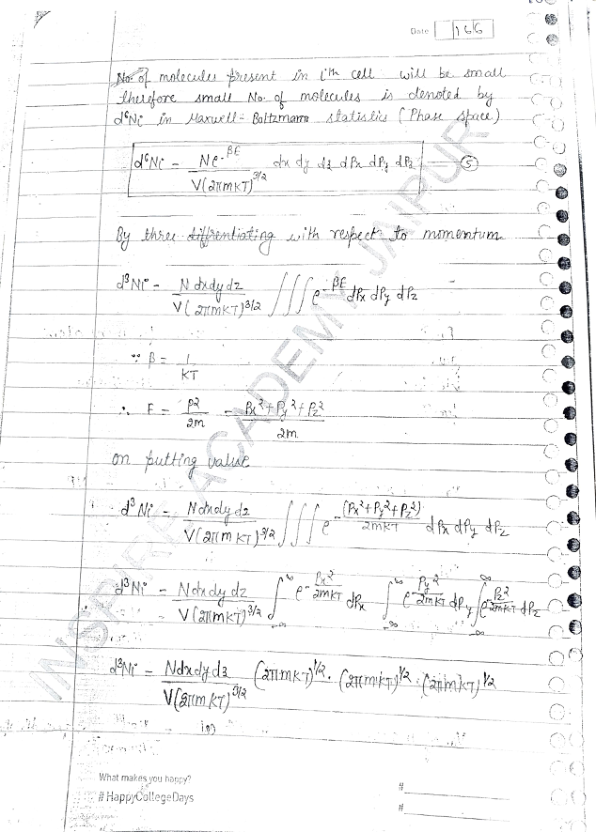 Date 166
No. of molecules present in iᵗʰ cell will be small
therefore small No. of molecules is denoted by
d⁶Ni in Maxwell-Boltzmann statistics (Phase space)
d⁶Ni = Ne^-βE / V(2πmKT)^3/2 dx dy dz dPx dPy dPz — ⑤
By three diffrentiating with respect to momentum
d³Ni = N dxdydz / V(2πmKT)^3/2 ∫∫∫ e^-βE dPx dPy dPz
∵ β = 1/KT
∴ E = P²/2m = Px²+Py²+Pz² / 2m
on putting value
d³Ni = Ndxdydz / V(2πmKT)^3/2 ∫∫∫ e^-(Px²+Py²+Pz²)/2mKT dPx dPy dPz
d³Ni = Ndxdydz / V(2πmKT)^3/2 ∫_-∞^∞ e^-Px²/2mKT dPx ∫_-∞^∞ e^-Py²/2mKT dPy ∫_-∞^∞ e^-Pz²/2mKT dPz
d³Ni = Ndxdydz / V(2πmKT)^3/2 (2πmKT)^1/2 · (2πmKT)^1/2 · (2πmKT)^1/2
What makes you happy?
#HappyCollegeDays
#
#
INSPIRE ACADEMY JAIPUR